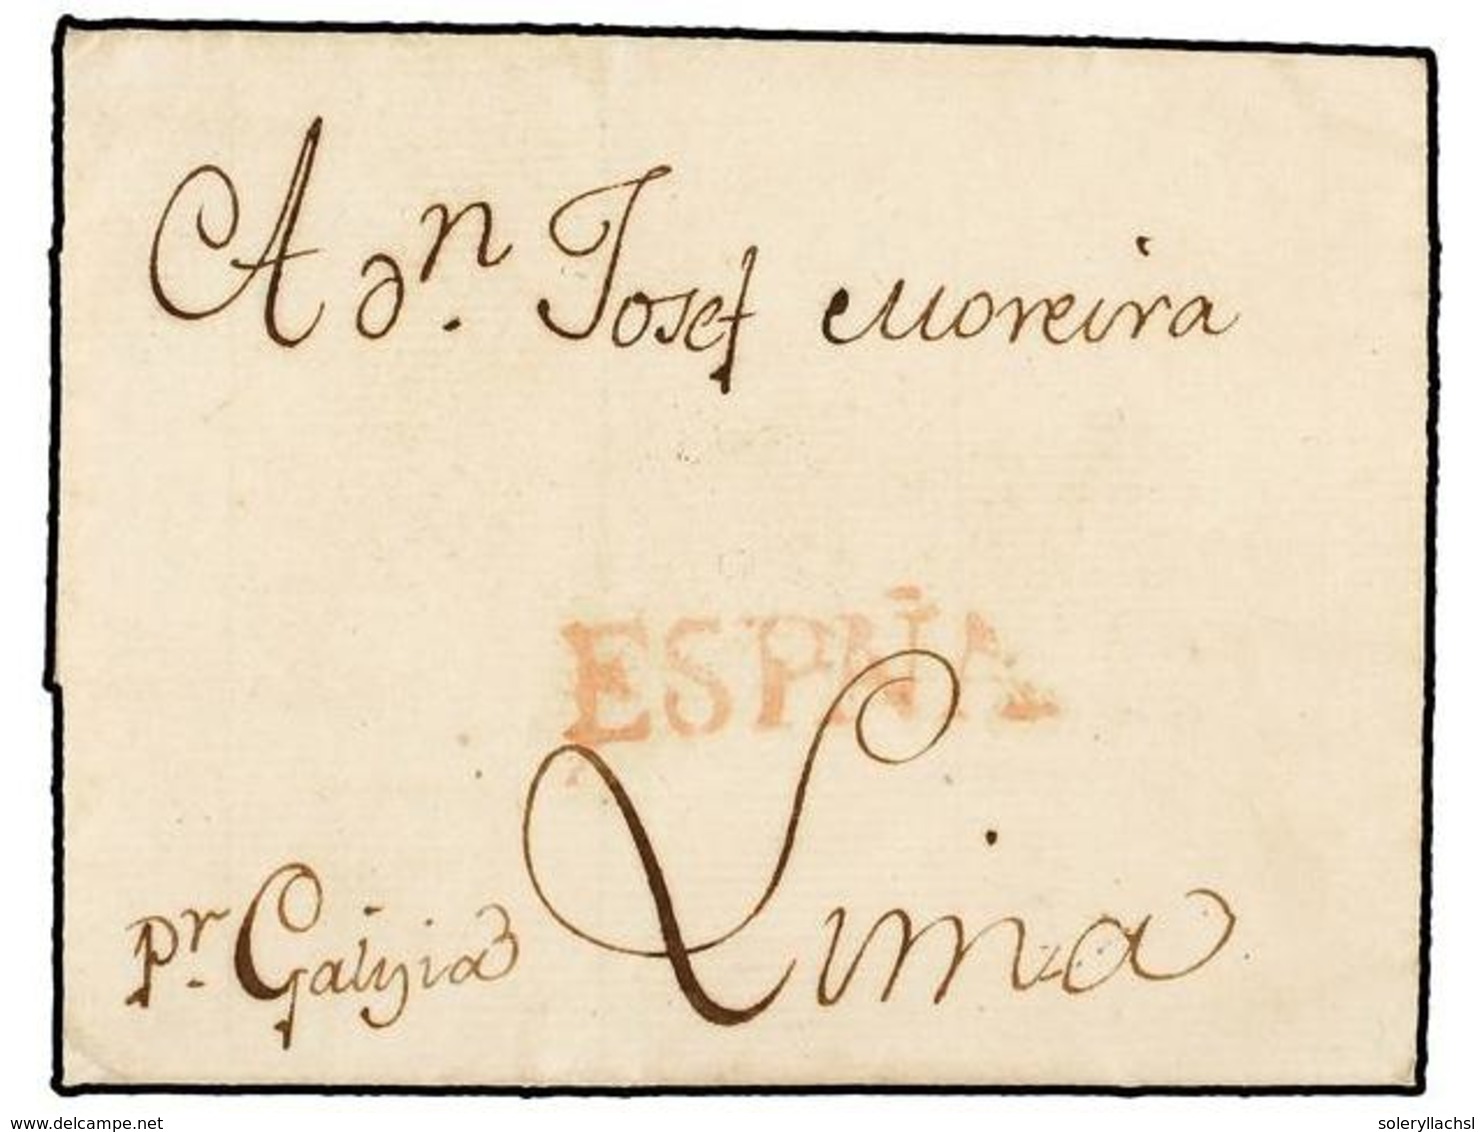 A dn. Josef Moreira
ESPÑA
pr. Galizia Lima
www.delcampe.net
soleryllachsl